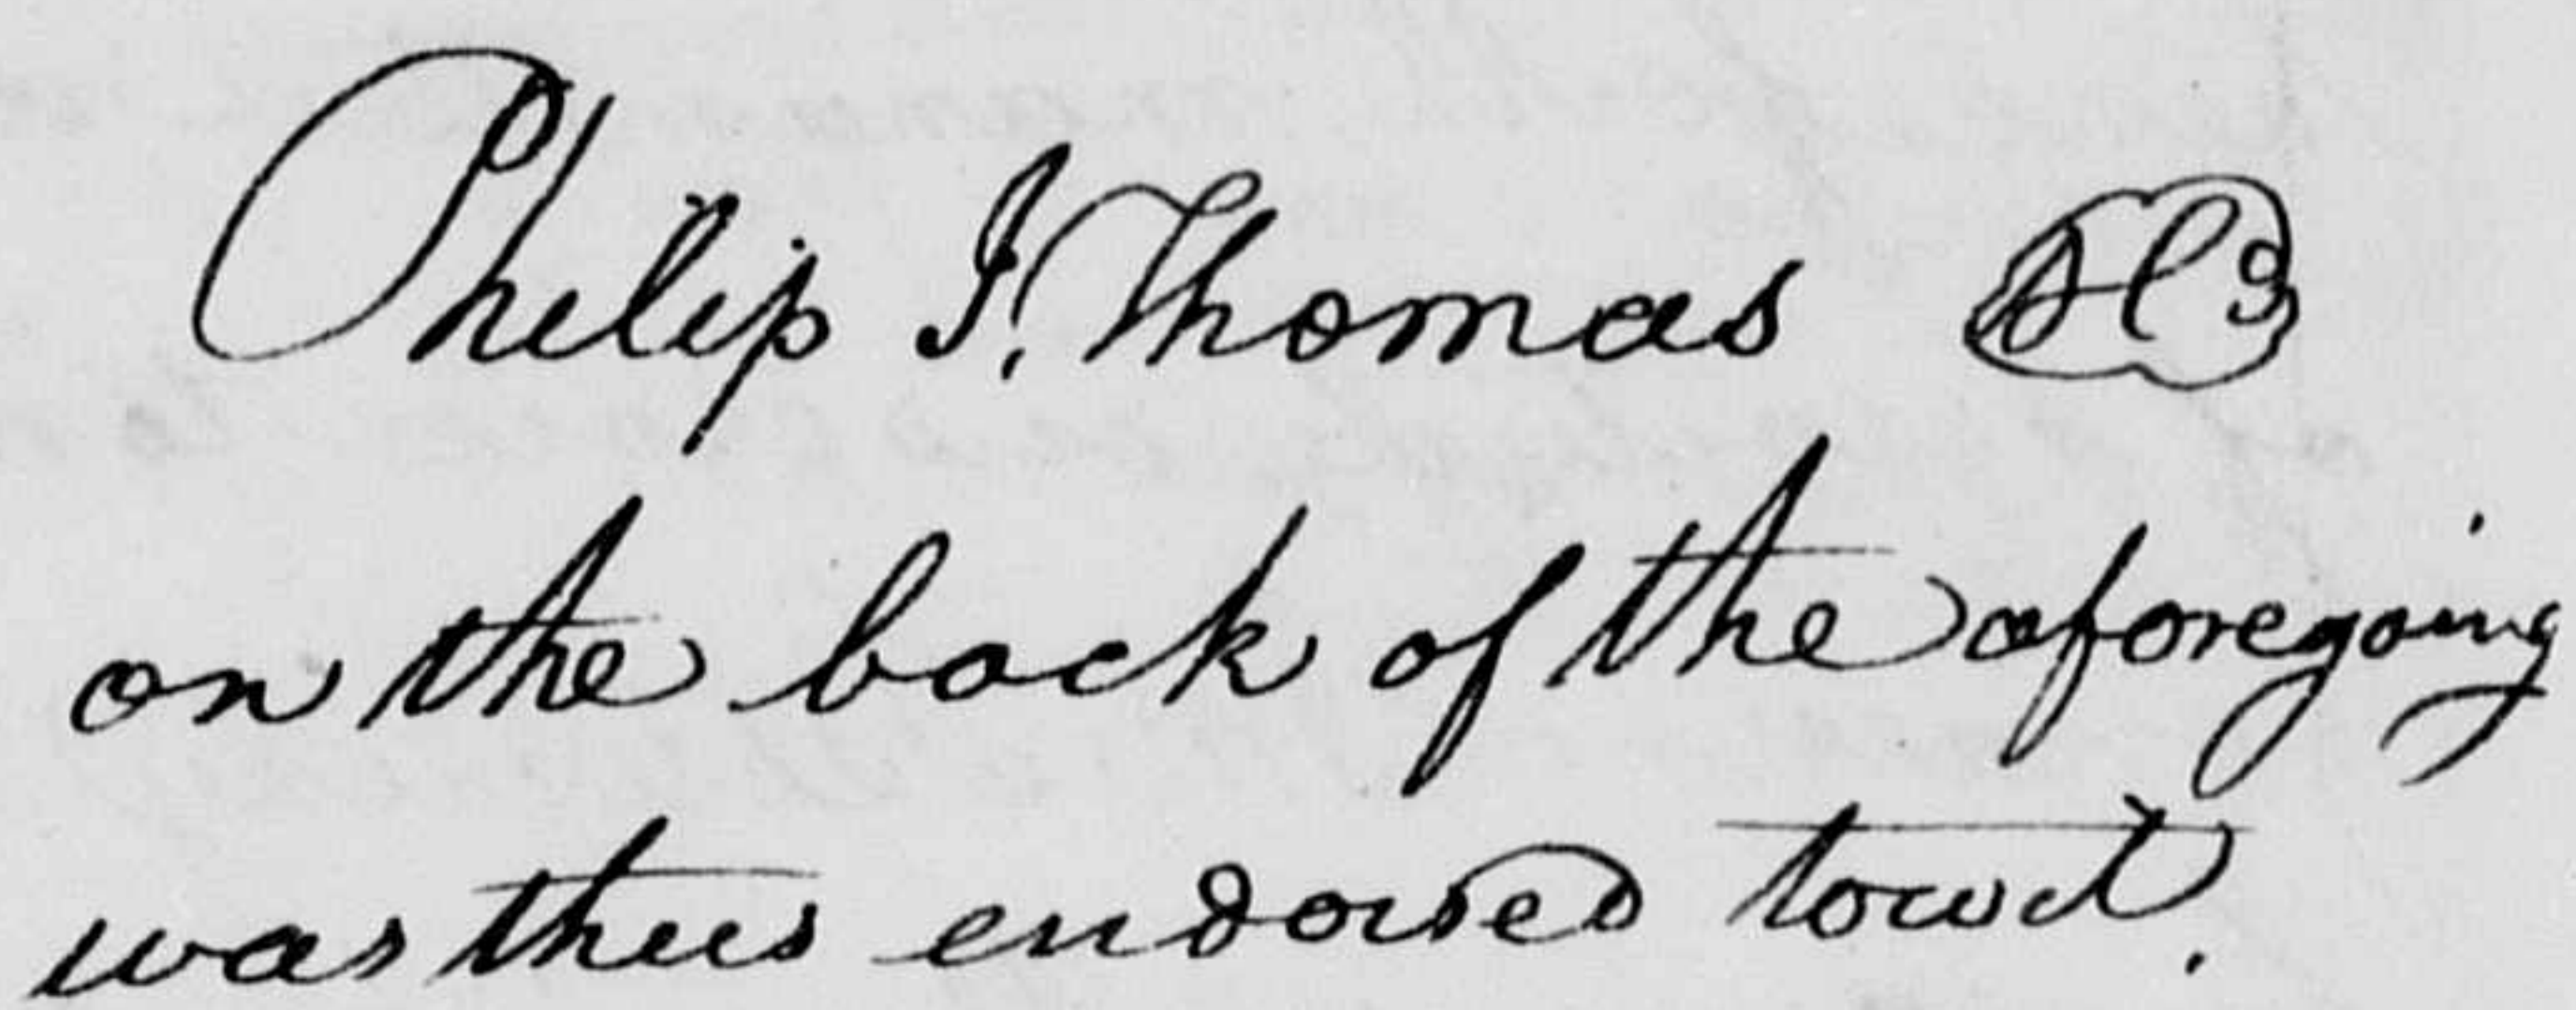 Philip J. Thomas
on the back of the aforegoing
was thus endorsed towit.